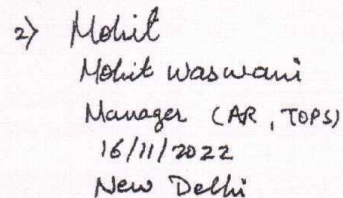 2) Mohit
Mohit Waswani
Manager (AR, TOPS)
16/11/2022
New Delhi